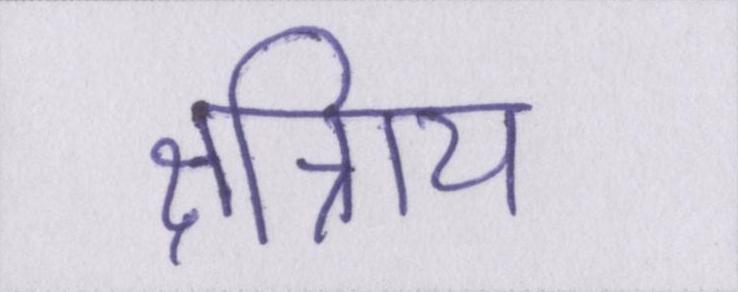 क्षत्रिय